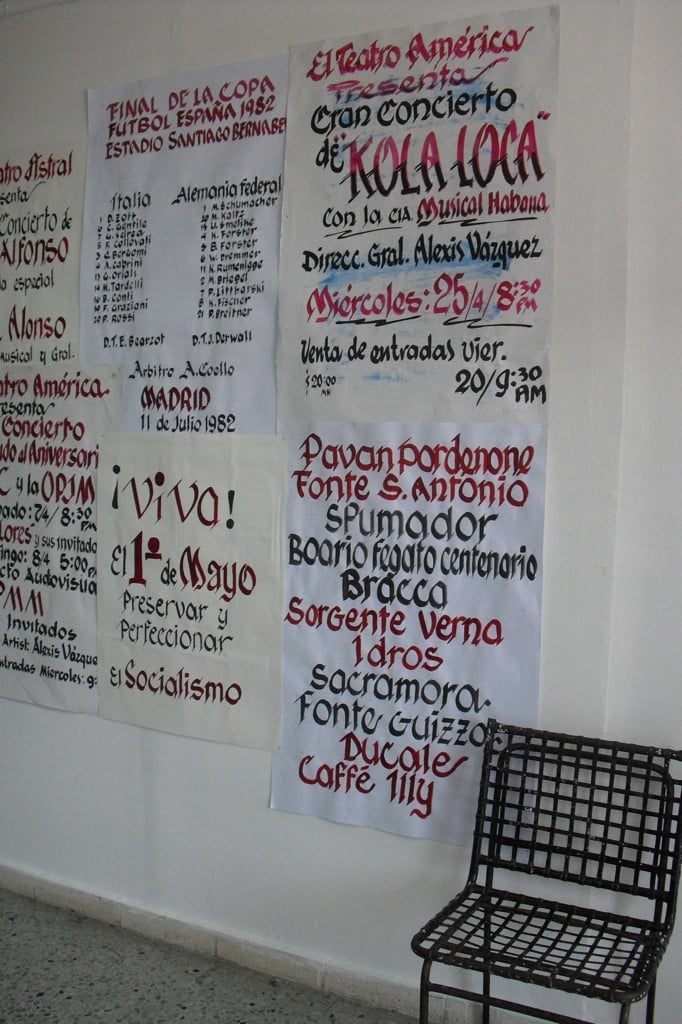 atro Astral
senta
Concierto de
Alfonso
la espacial
Alonso
Musical y Gral.
atro América
resenta
Concierto
do al Aniversari
C y la OPJM
bado: 7/4/8:30
PM
lores y sus invitado
ingo: 8/4 5:00
cto Audiovisua
PMM
Invitados
Artist: Alexis Vázque
ntradas Miercoles: 9:
FINAL DE LA COPA
FUTBOL ESPAÑA 1982
ESTADIO SANTIAGO BERNABE
Italia
1 D. Zoff
6 C. Gentile
5 F. Collovati
3 G. Bergomi
4 A. Cabrini
13 G. Oriali
14 M. Tardelli
16 B. Conti
19 F. Graziani
20 P. Rossi
D.T. E. Bearzot
Alemania federal
1 M. Schumacher
20 M. Kaltz
4 K. Forster
5 B. Forster
6 W. Dremmer
11 K. Rumenigge
2 H. Briegel
7 P. Littbarski
8 K. Fischer
3 P. Breitner
D.T. J. Derwall
Arbitro A. Coello
MADRID
11 de Julio 1982
El Teatro América
Presenta
Gran Concierto
de "KOLA LOCA"
con la CIA. Musical Habana
Direcc. Gral. Alexis Vázquez
Miércoles: 25/4/8:30
PM
Venta de entradas vier.
$20:00
MN
20/9:30
AM
¡Viva!
El 1º de Mayo
Preservar y
Perfeccionar
El Socialismo
Pavan Pordenone
Fonte S. Antonio
Spumador
Boario fegato centenario
Bracca
Sorgente Verna
Idros
Sacramora.
Fonte Guizza
Ducale
Caffé Illy